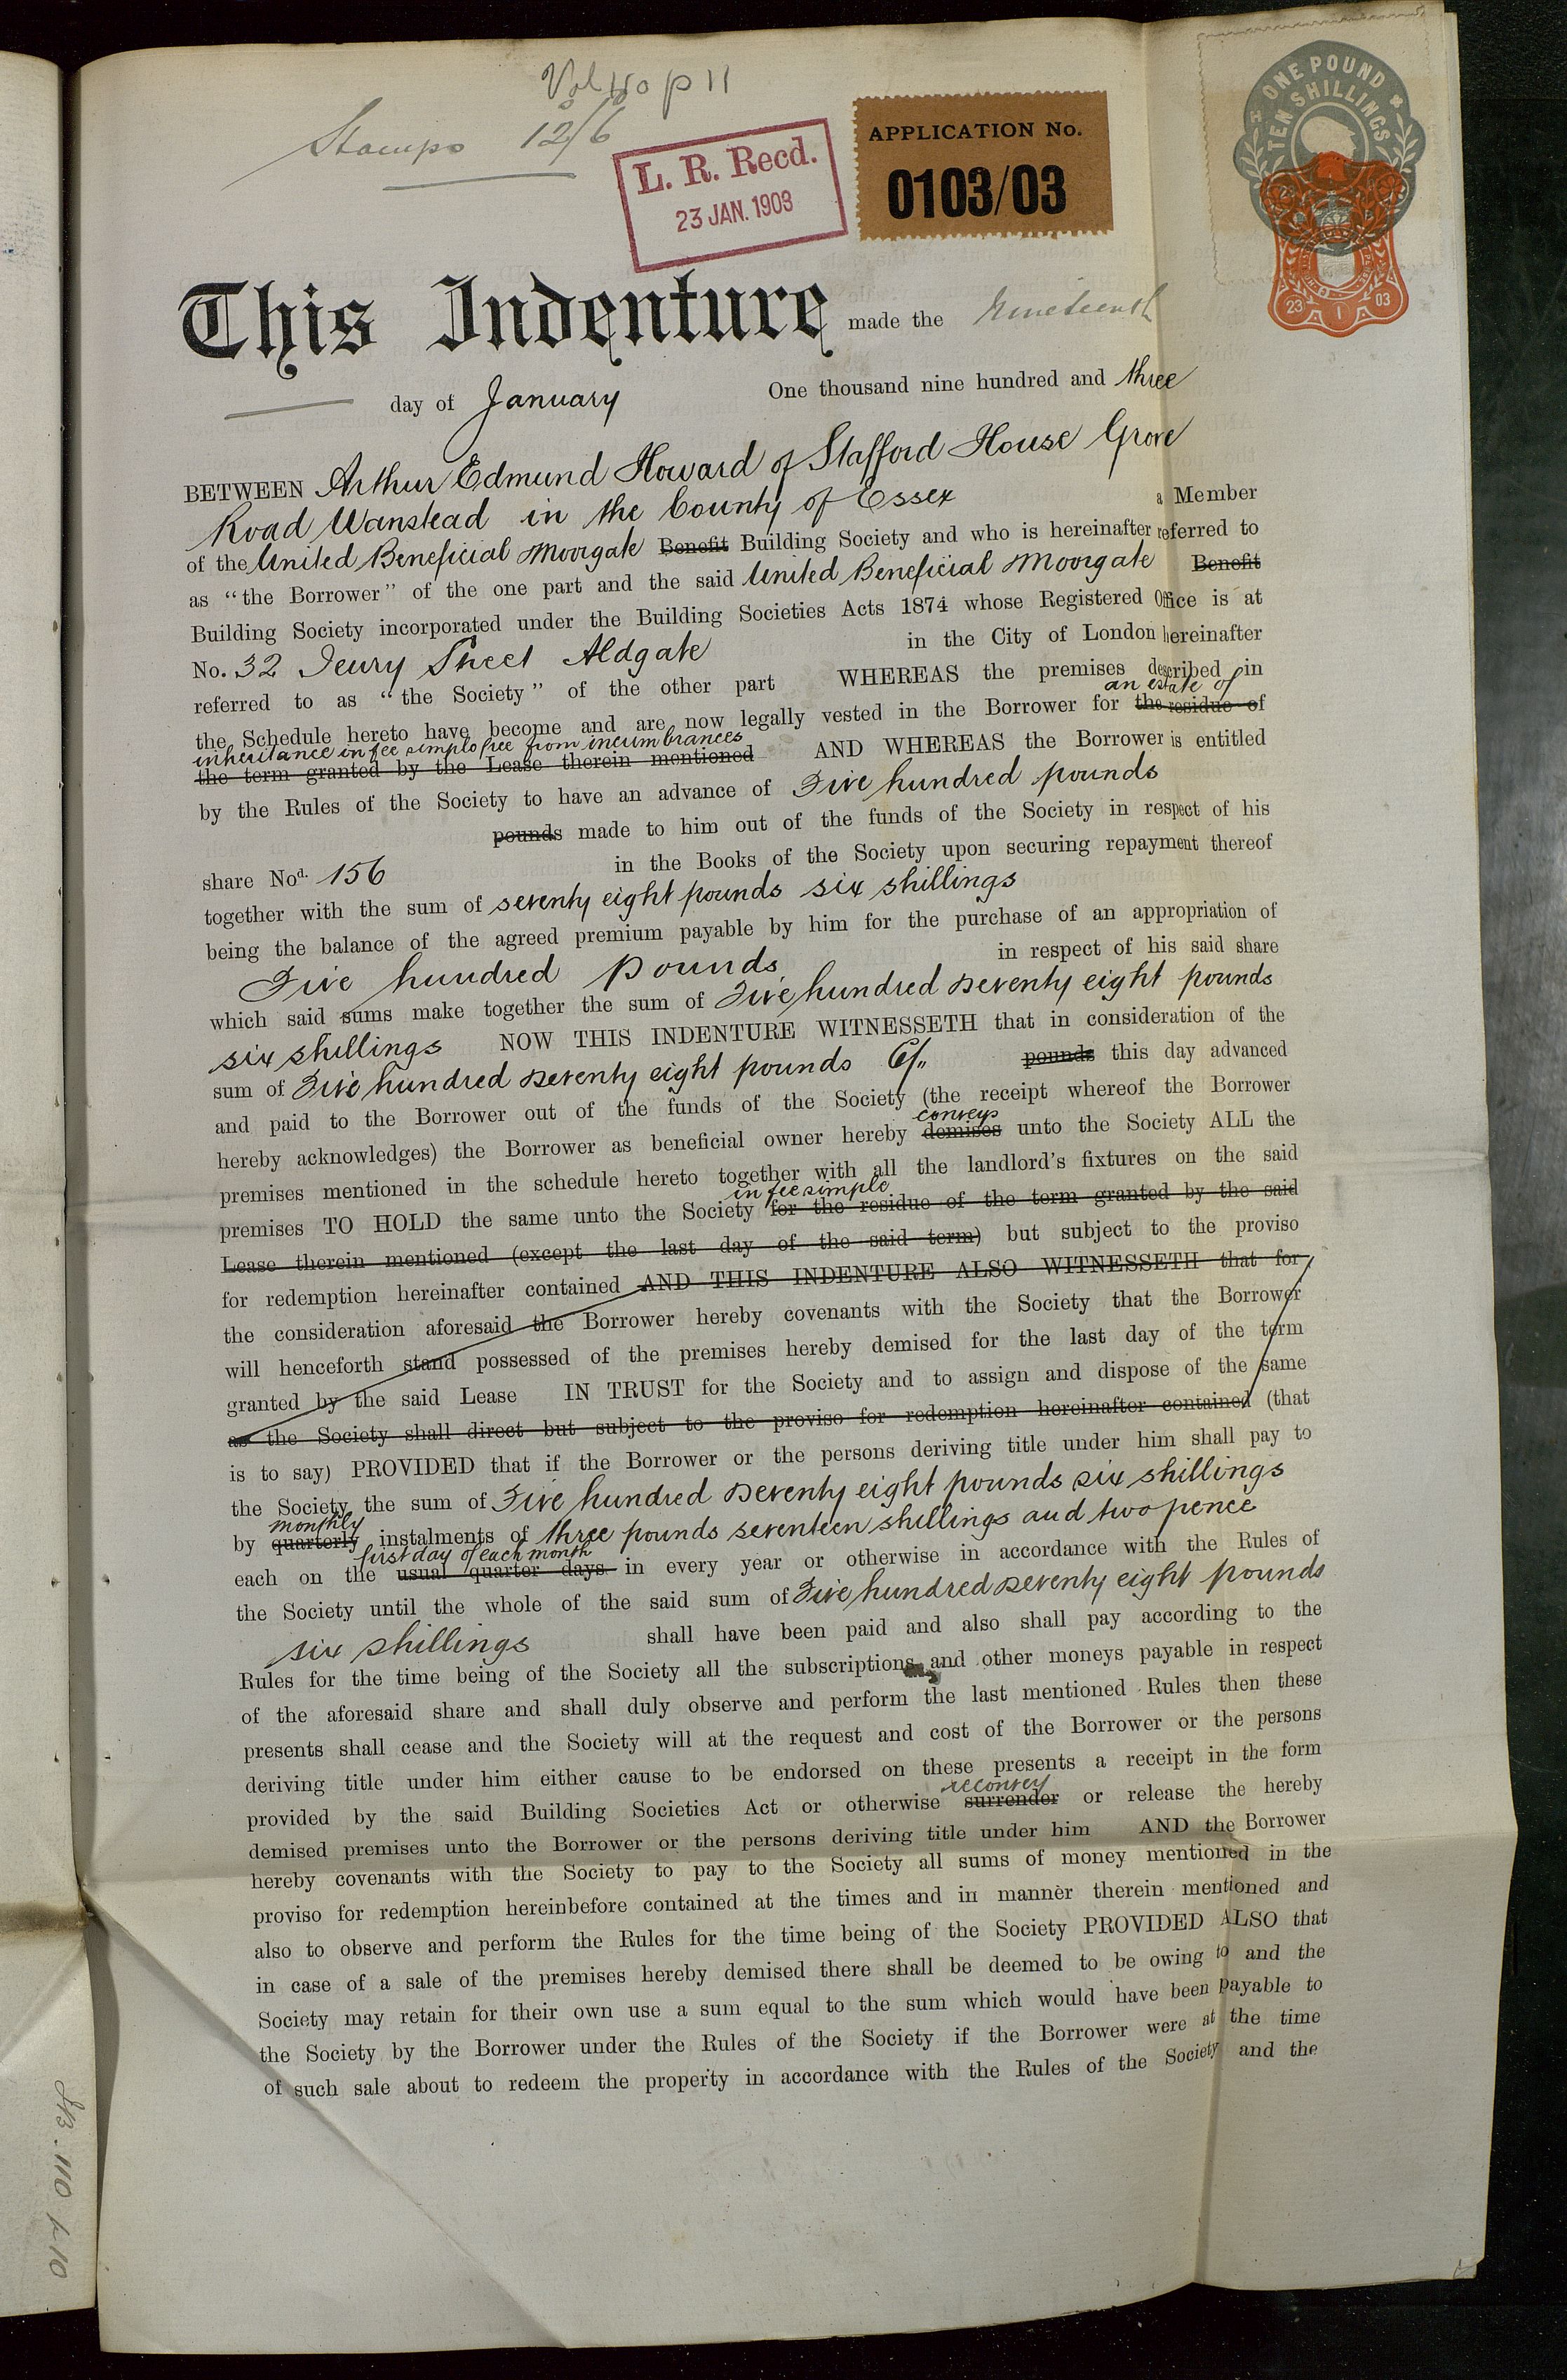 Vol 110 p 11
Stamps 12/6
L. R. Recd.
23 JAN. 1903
APPLICATION No.
0103/03
ONE POUND
TEN SHILLINGS
23 1 03
This Indenture made the Nineteenth
day of January One thousand nine hundred and three
BETWEEN Arthur Edmund Howard of Stafford House Grove
Road Wanstead in the County of Essex a Member
of the United Beneficial Moorgate Benefit Building Society and who is hereinafter referred to
as "the Borrower" of the one part and the said United Beneficial Moorgate Benefit
Building Society incorporated under the Building Societies Acts 1874 whose Registered Office is at
No. 32 Jewry Street Aldgate in the City of London hereinafter
referred to as "the Society" of the other part WHEREAS the premises described in
an estate of
the Schedule hereto have become and are now legally vested in the Borrower for the residue of
inheritance in fee simple free from incumbrances
the term granted by the Lease therein mentioned AND WHEREAS the Borrower is entitled
by the Rules of the Society to have an advance of Five hundred pounds
pounds made to him out of the funds of the Society in respect of his
share Nod. 156 in the Books of the Society upon securing repayment thereof
together with the sum of seventy eight pounds six shillings
being the balance of the agreed premium payable by him for the purchase of an appropriation of
Five hundred Pounds in respect of his said share
which said sums make together the sum of Five hundred seventy eight pounds
six shillings NOW THIS INDENTURE WITNESSETH that in consideration of the
sum of Five hundred seventy eight pounds 6/,, pounds this day advanced
and paid to the Borrower out of the funds of the Society (the receipt whereof the Borrower
conveys
hereby acknowledges) the Borrower as beneficial owner hereby demises unto the Society ALL the
premises mentioned in the schedule hereto together with all the landlord's fixtures on the said
in fee simple
premises TO HOLD the same unto the Society for the residue of the term granted by the said
Lease therein mentioned (except the last day of the said term) but subject to the proviso
for redemption hereinafter contained AND THIS INDENTURE ALSO WITNESSETH that for
the consideration aforesaid the Borrower hereby covenants with the Society that the Borrower
will henceforth stand possessed of the premises hereby demised for the last day of the term
granted by the said Lease IN TRUST for the Society and to assign and dispose of the same
as the Society shall direct but subject to the proviso for redemption hereinafter contained (that
is to say) PROVIDED that if the Borrower or the persons deriving title under him shall pay to
the Society the sum of Five hundred seventy eight pounds six shillings
monthly
by quarterly instalments of three pounds seventeen shillings and two pence
first day of each month
each on the usual quarter days in every year or otherwise in accordance with the Rules of
the Society until the whole of the said sum of Five hundred seventy eight pounds
six shillings shall have been paid and also shall pay according to the
Rules for the time being of the Society all the subscriptions and other moneys payable in respect
of the aforesaid share and shall duly observe and perform the last mentioned Rules then these
presents shall cease and the Society will at the request and cost of the Borrower or the persons
deriving title under him either cause to be endorsed on these presents a receipt in the form
reconvey
provided by the said Building Societies Act or otherwise surrender or release the hereby
demised premises unto the Borrower or the persons deriving title under him AND the Borrower
hereby covenants with the Society to pay to the Society all sums of money mentioned in the
proviso for redemption hereinbefore contained at the times and in manner therein mentioned and
also to observe and perform the Rules for the time being of the Society PROVIDED ALSO that
in case of a sale of the premises hereby demised there shall be deemed to be owing to and the
Society may retain for their own use a sum equal to the sum which would have been payable to
the Society by the Borrower under the Rules of the Society if the Borrower were at the time
of such sale about to redeem the property in accordance with the Rules of the Society and the